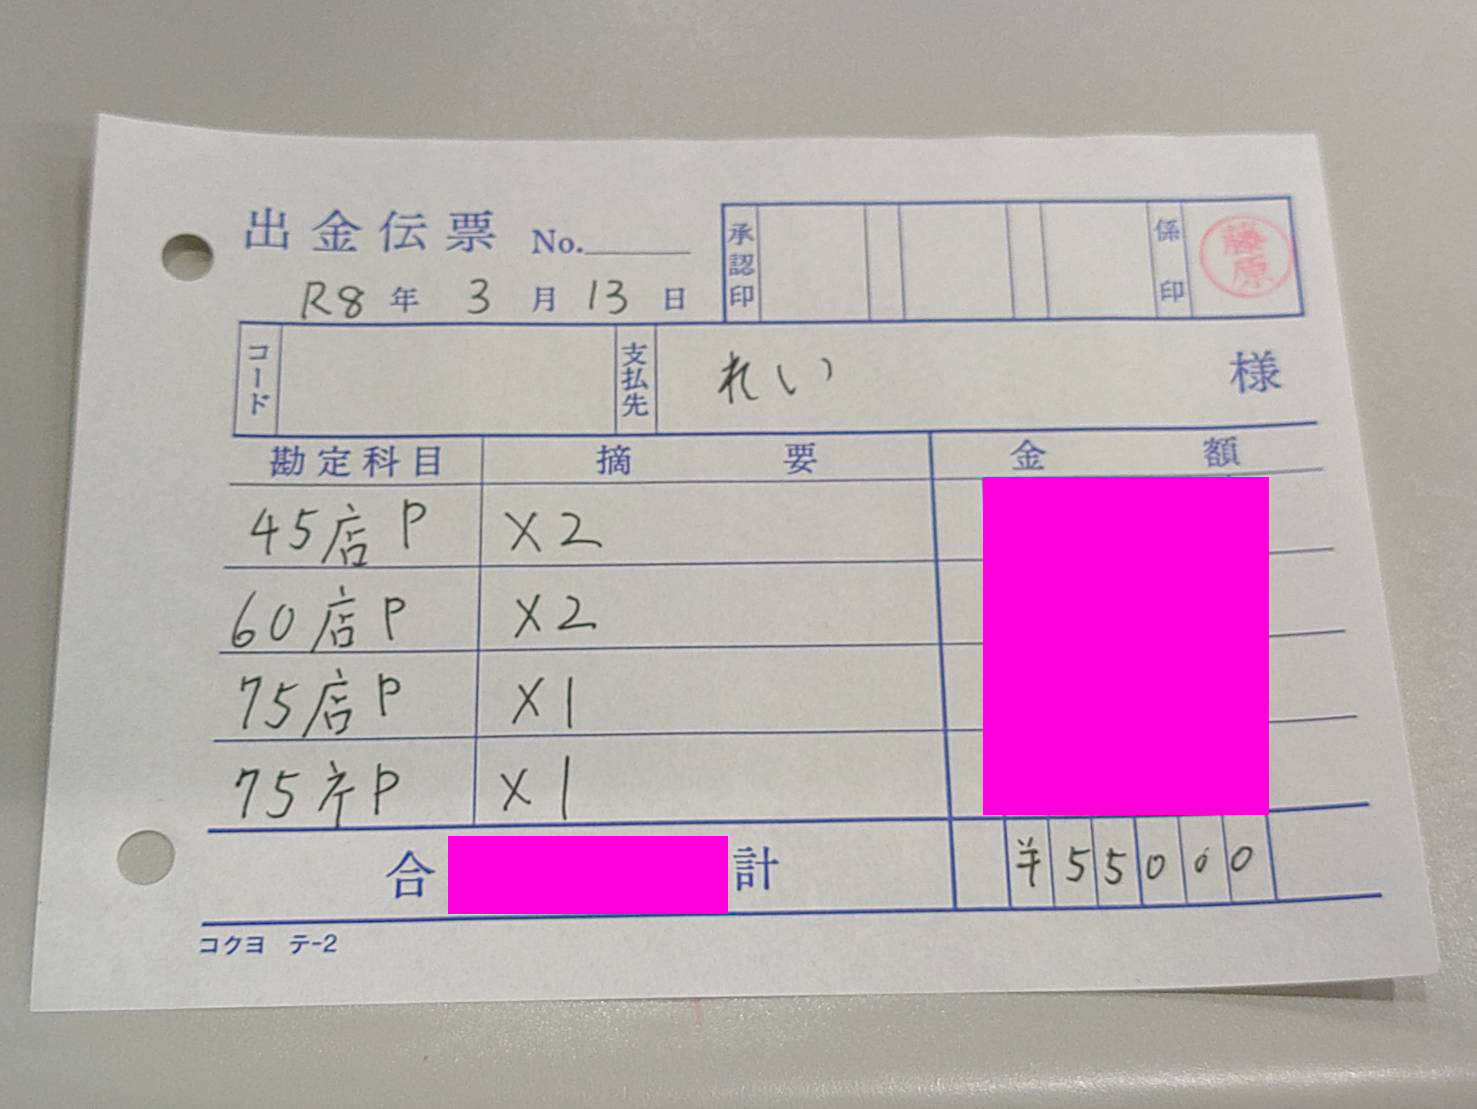 出金伝票 No.
承認印 係印 藤原
R8年 3月 13日
コード 支払先 れい 様
勘定科目 摘要 金額
45店P ×2
60店P ×2
75店P ×1
75ネP ×1
合計 ¥55000
コクヨ テ-2